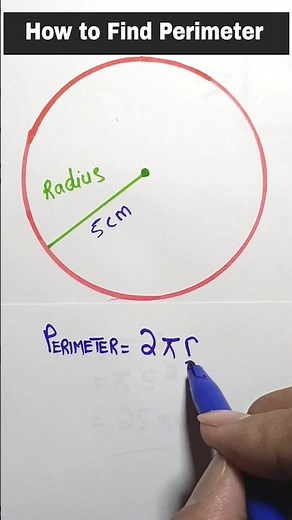 How to Find Perimeter
Radius
5cm
PERIMETER = 2πr